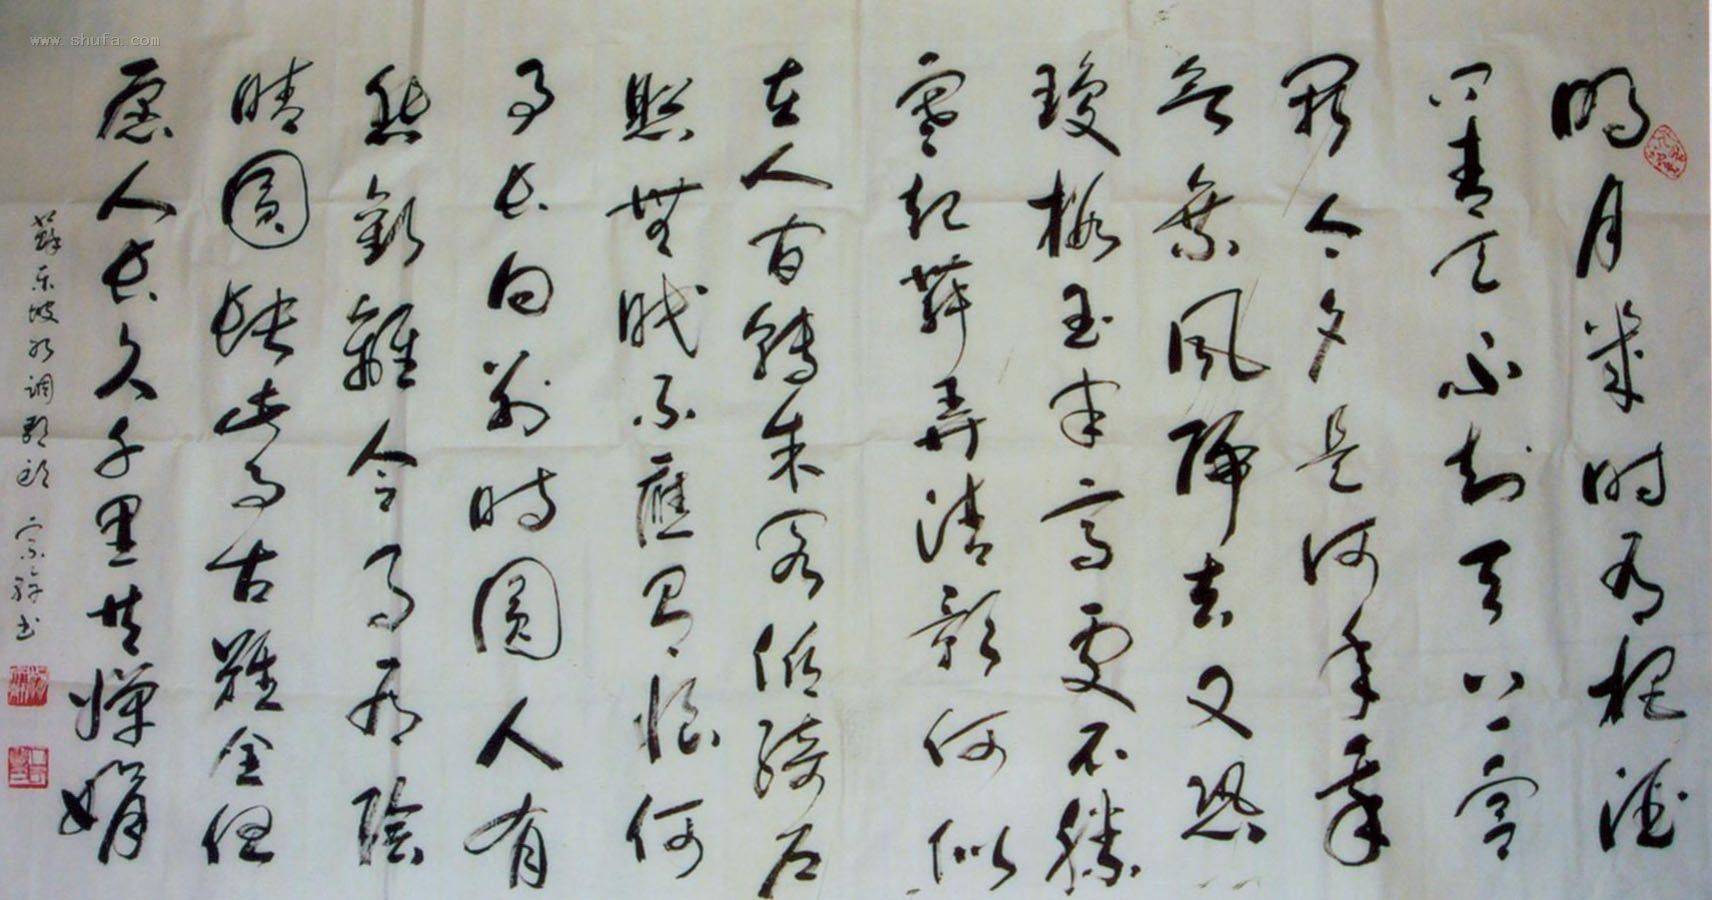 明月幾时有把酒
问青天不知天上宫
阙今夕是何年我
欲乘風歸去又恐
瓊樓玉宇高處不勝
寒起舞弄清影何似
在人间轉朱阁低綺户
照無眠不應有恨何
事长向别時圓人有
悲歡離合月有陰
晴圓缺此事古難全但
愿人长久千里共嬋娟
蘇东坡水调歌头 宗 书
www.shufa.com